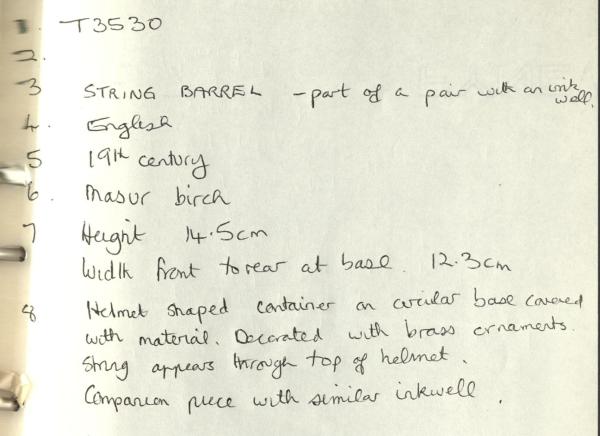 1. T3530
2.
3 STRING BARREL - part of a pair with an ink well.
4. English
5 19th century
6. Masur birch
7 Height 14.5cm
Width front to rear at base. 12.3cm
8 Helmet shaped container on circular base covered
with material. Decorated with brass ornaments.
String appears through top of helmet.
Companion piece with similar inkwell.